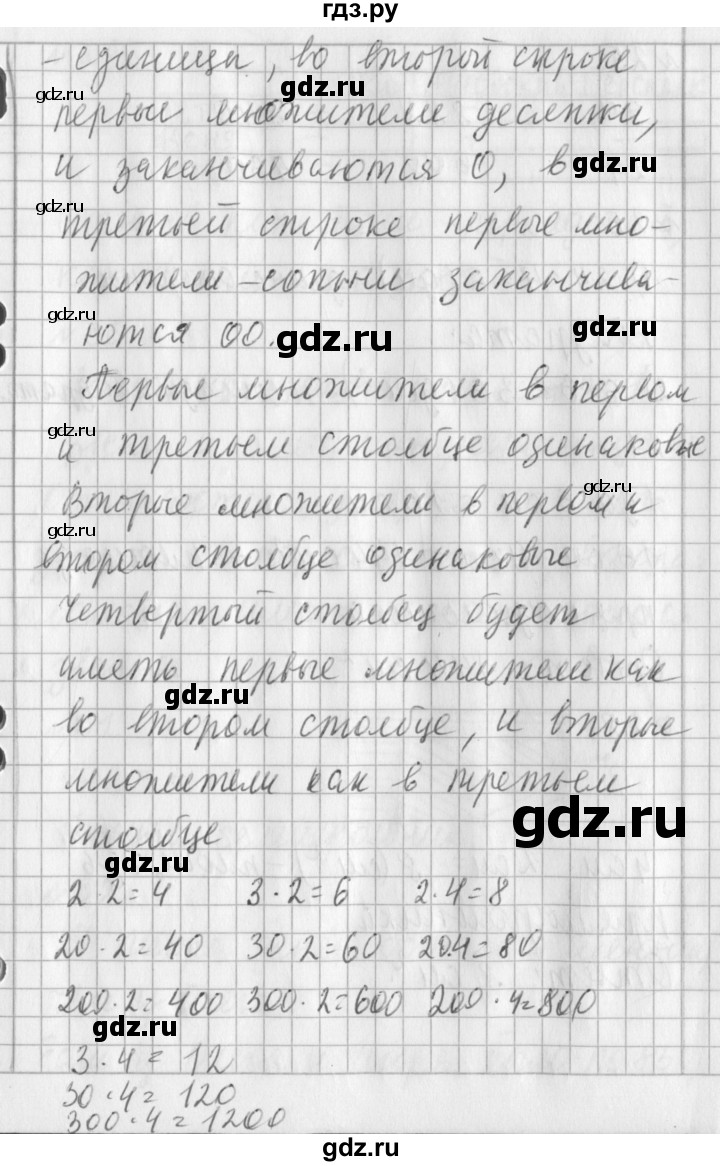 гдз.ру
- единица, во второй строке
gdz.ru
gdz.ru
первые множители десятки,
и заканчиваются 0, в
gdz.ru
gdz.ru
третьей строке первые мно-
жители - сотни заканчива-
gdz.ru
ются 00.
gdz.ru
gdz.ru
Первые множители в первом
gdz.ru
и третьем столбце одинаковые
Вторые множители в первом и
gdz.ru
gdz.ru
втором столбце одинаковые
Четвертый столбец будет
иметь первые множители как
gdz.ru
во втором столбце, и вторые
множители как в третьем
gdz.ru
столбце
gdz.ru
2 · 2 = 4 3 · 2 = 6 2 · 4 = 8
20 · 2 = 40 30 · 2 = 60 20 · 4 = 80
gdz.ru
200 · 2 = 400 300 · 2 = 600 200 · 4 = 800
gdz.ru
3 · 4 = 12
30 · 4 = 120
300 · 4 = 1200
gdz.ru